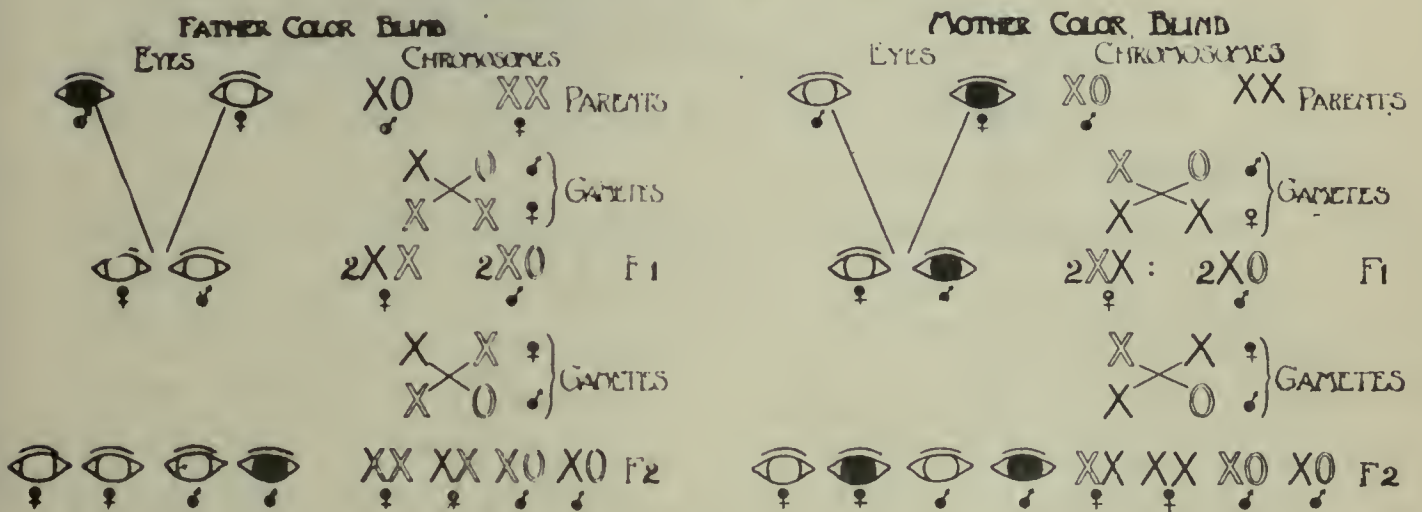 FATHER COLOR BLIND
EYES CHROMOSOMES
♂ ♀ XO ♂ XX ♀ PARENTS
X O ♂
X X ♀
GAMETES
♀ ♂ 2XX ♀ 2XO ♂ F1
X X ♀
X O ♂
GAMETES
♀ ♀ ♂ ♂ XX ♀ XX ♀ XO ♂ XO ♂ F2
MOTHER COLOR BLIND
EYES CHROMOSOMES
♂ ♀ XO ♂ XX PARENTS
X O ♂
X X ♀
GAMETES
♀ ♂ 2XX : ♀ 2XO ♂ F1
X X ♀
X O ♂
GAMETES
♀ ♀ ♂ ♂ XX ♀ XX ♀ XO ♂ XO ♂ F2